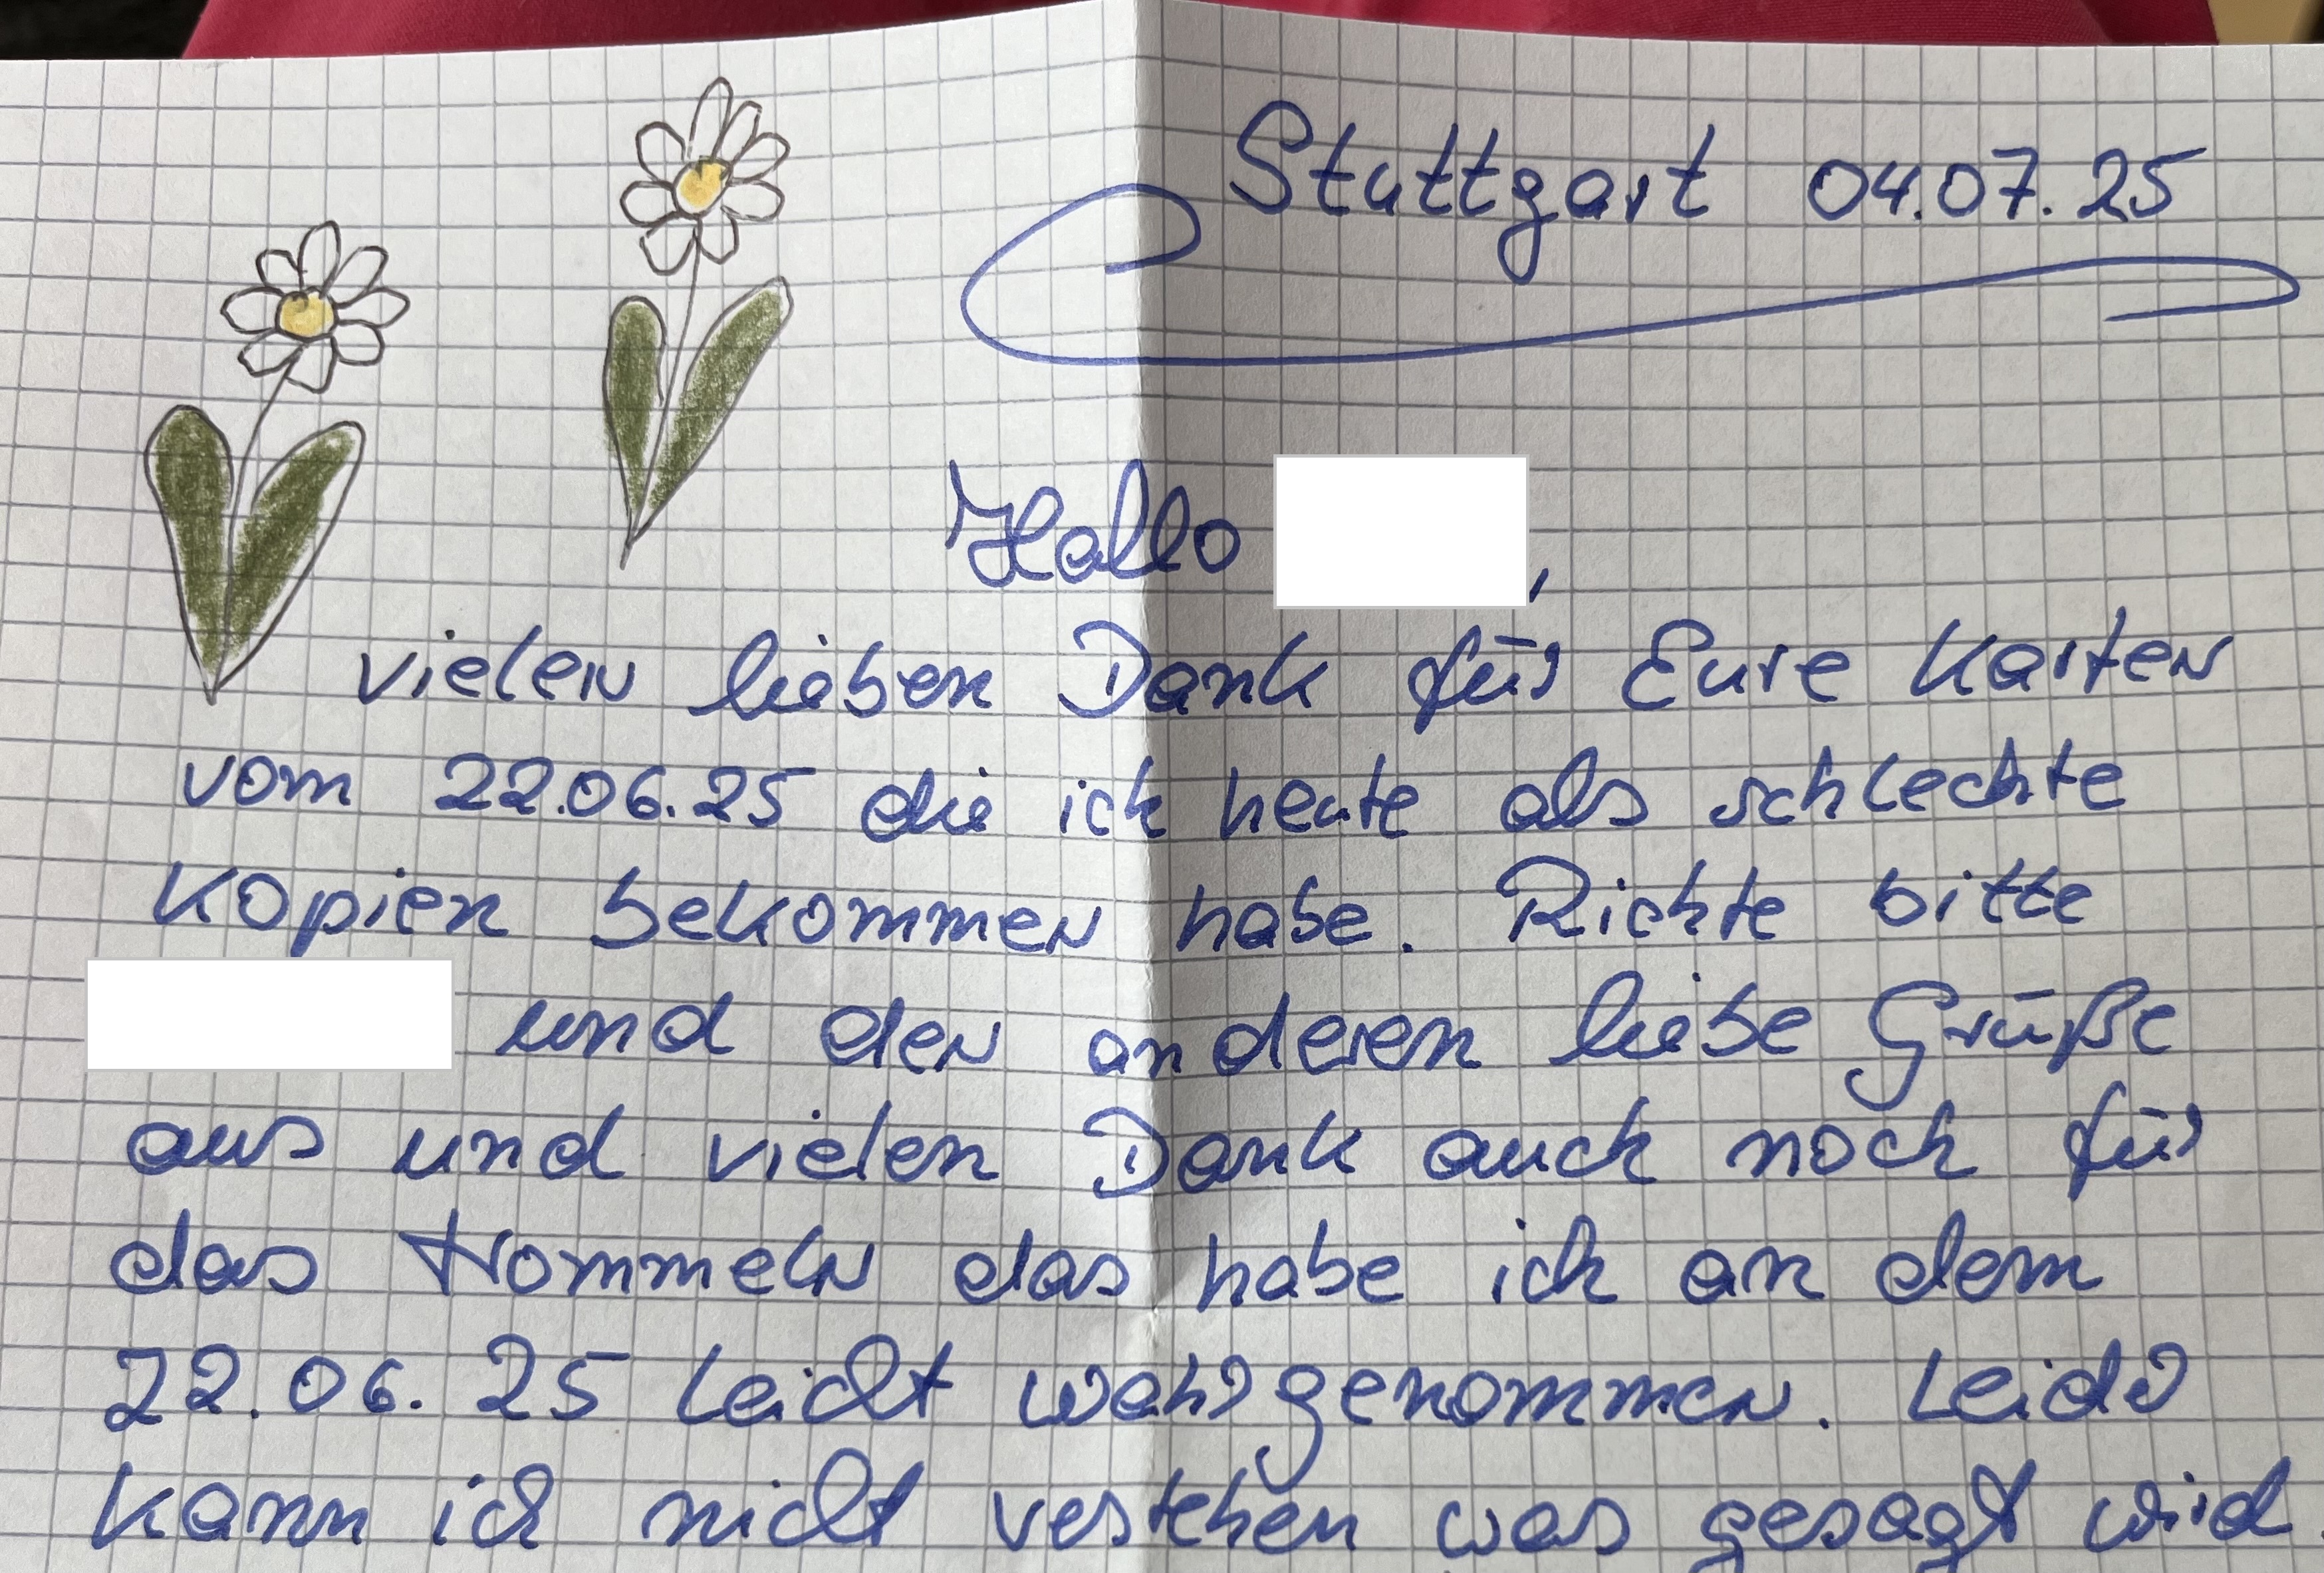 Stuttgart 04.07.25
Hallo ,
vielen lieben Dank für Eure Karten
vom 22.06.25 die ich heute als schlechte
Kopien bekommen habe. Richte bitte
und den anderen liebe Grüße
aus und vielen Dank auch noch für
das trommeln das habe ich an dem
22.06.25 leicht wahrgenommen. Leider
kann ich nicht verstehen was gesagt wird.